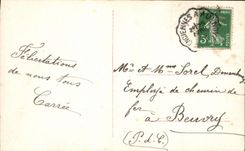 Félicitations
de nous tous
Carrée
Mr et Mme Sorel
Employé de chemin de
fer à Beuvry
(P.d.C)
5